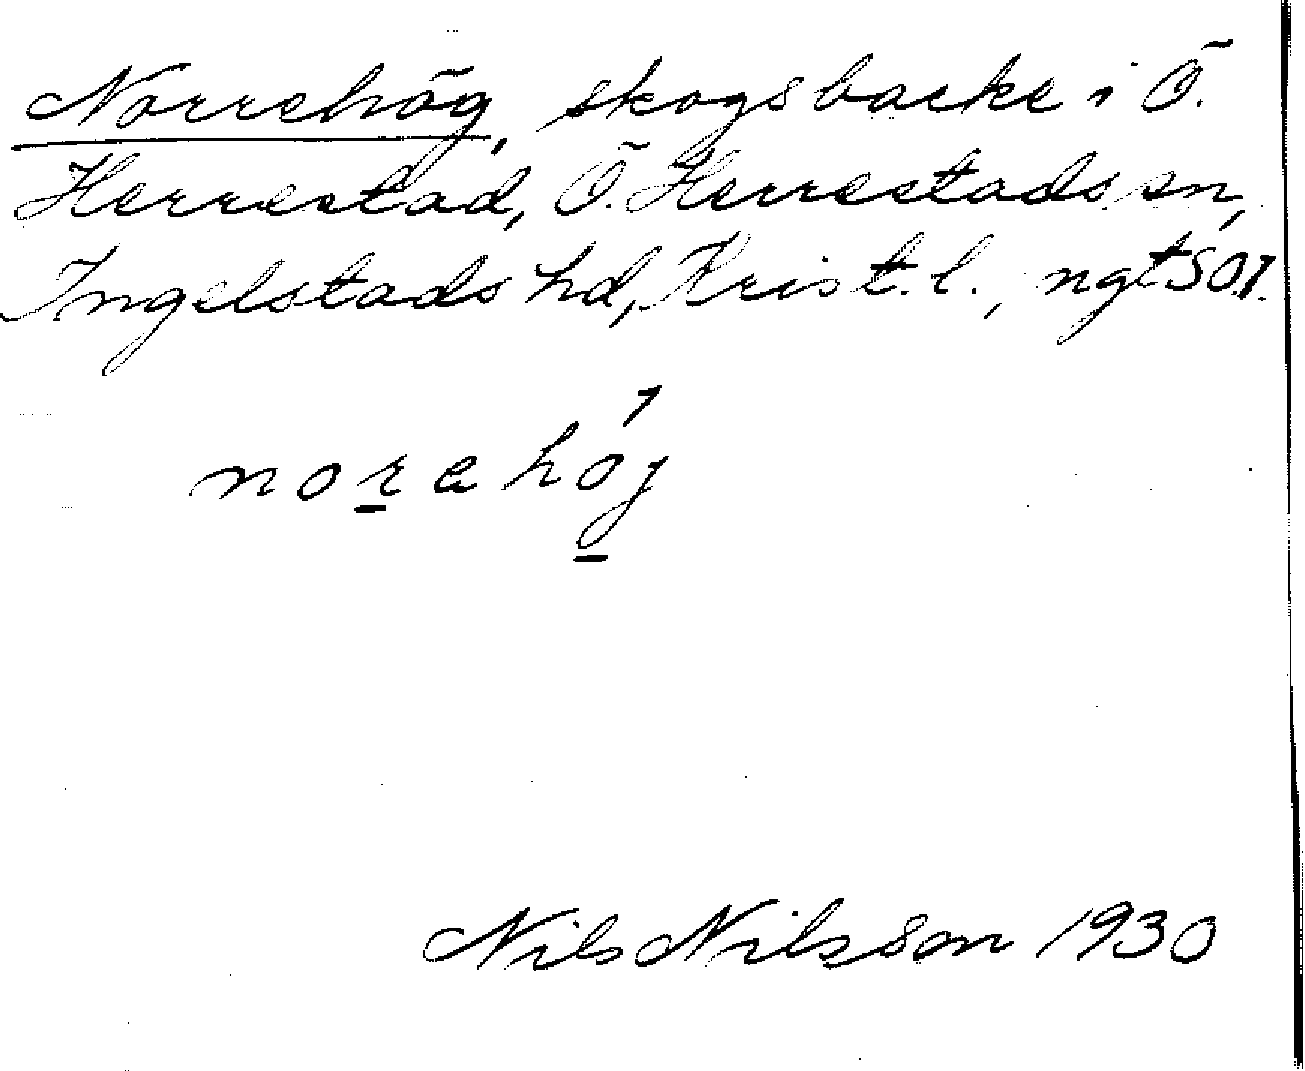 Norrehög, skogsbacke i Ö.
Herrestad, Ö. Herrestads sn,
Ingelstads hd, Krist. l., ngt SO.1.
norehój
Nils Nilsson 1930